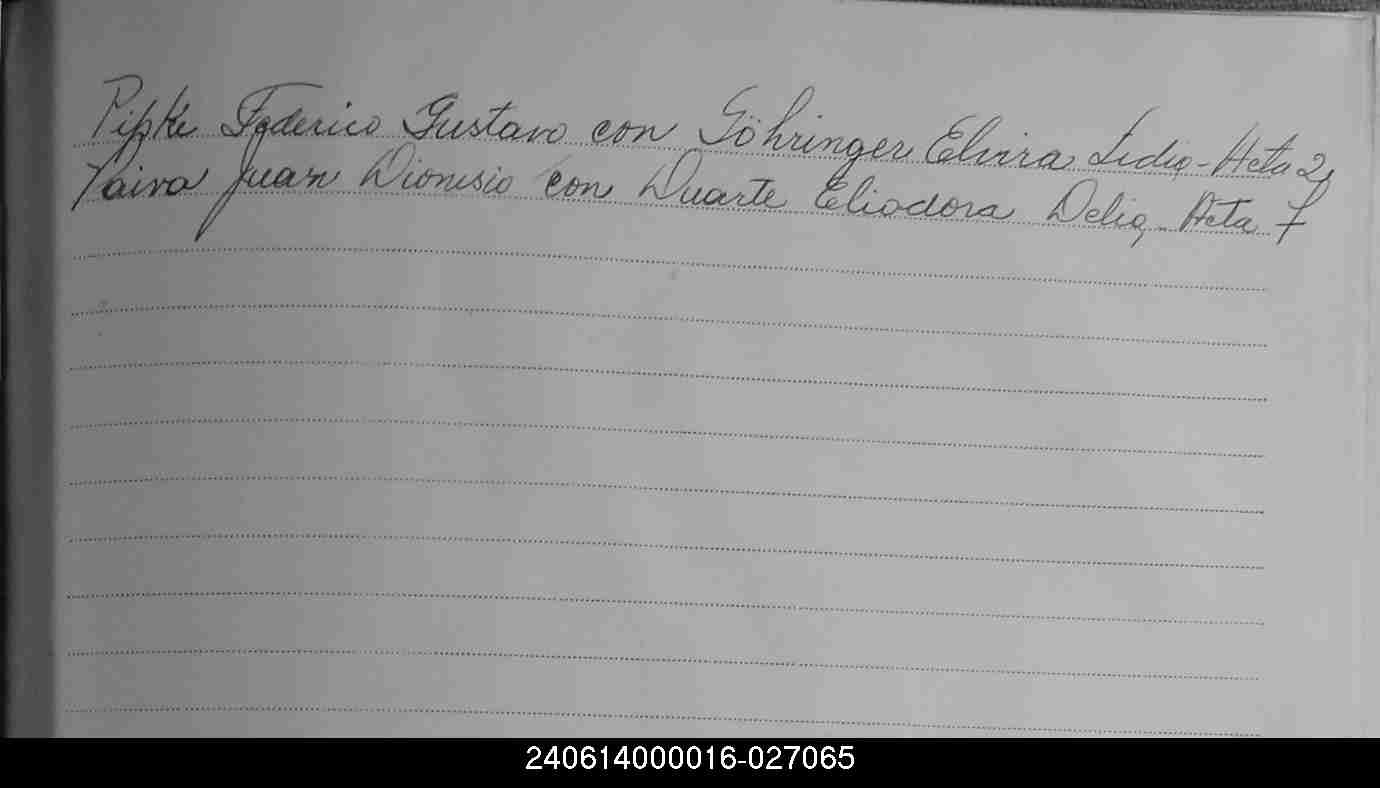 Pipke Federico Gustavo con Göhringer Elvira Lidia - Acta 2,
Paiva Juan Dionisio con Duarte Eliodora Delia - Acta 7
240614000016-027065